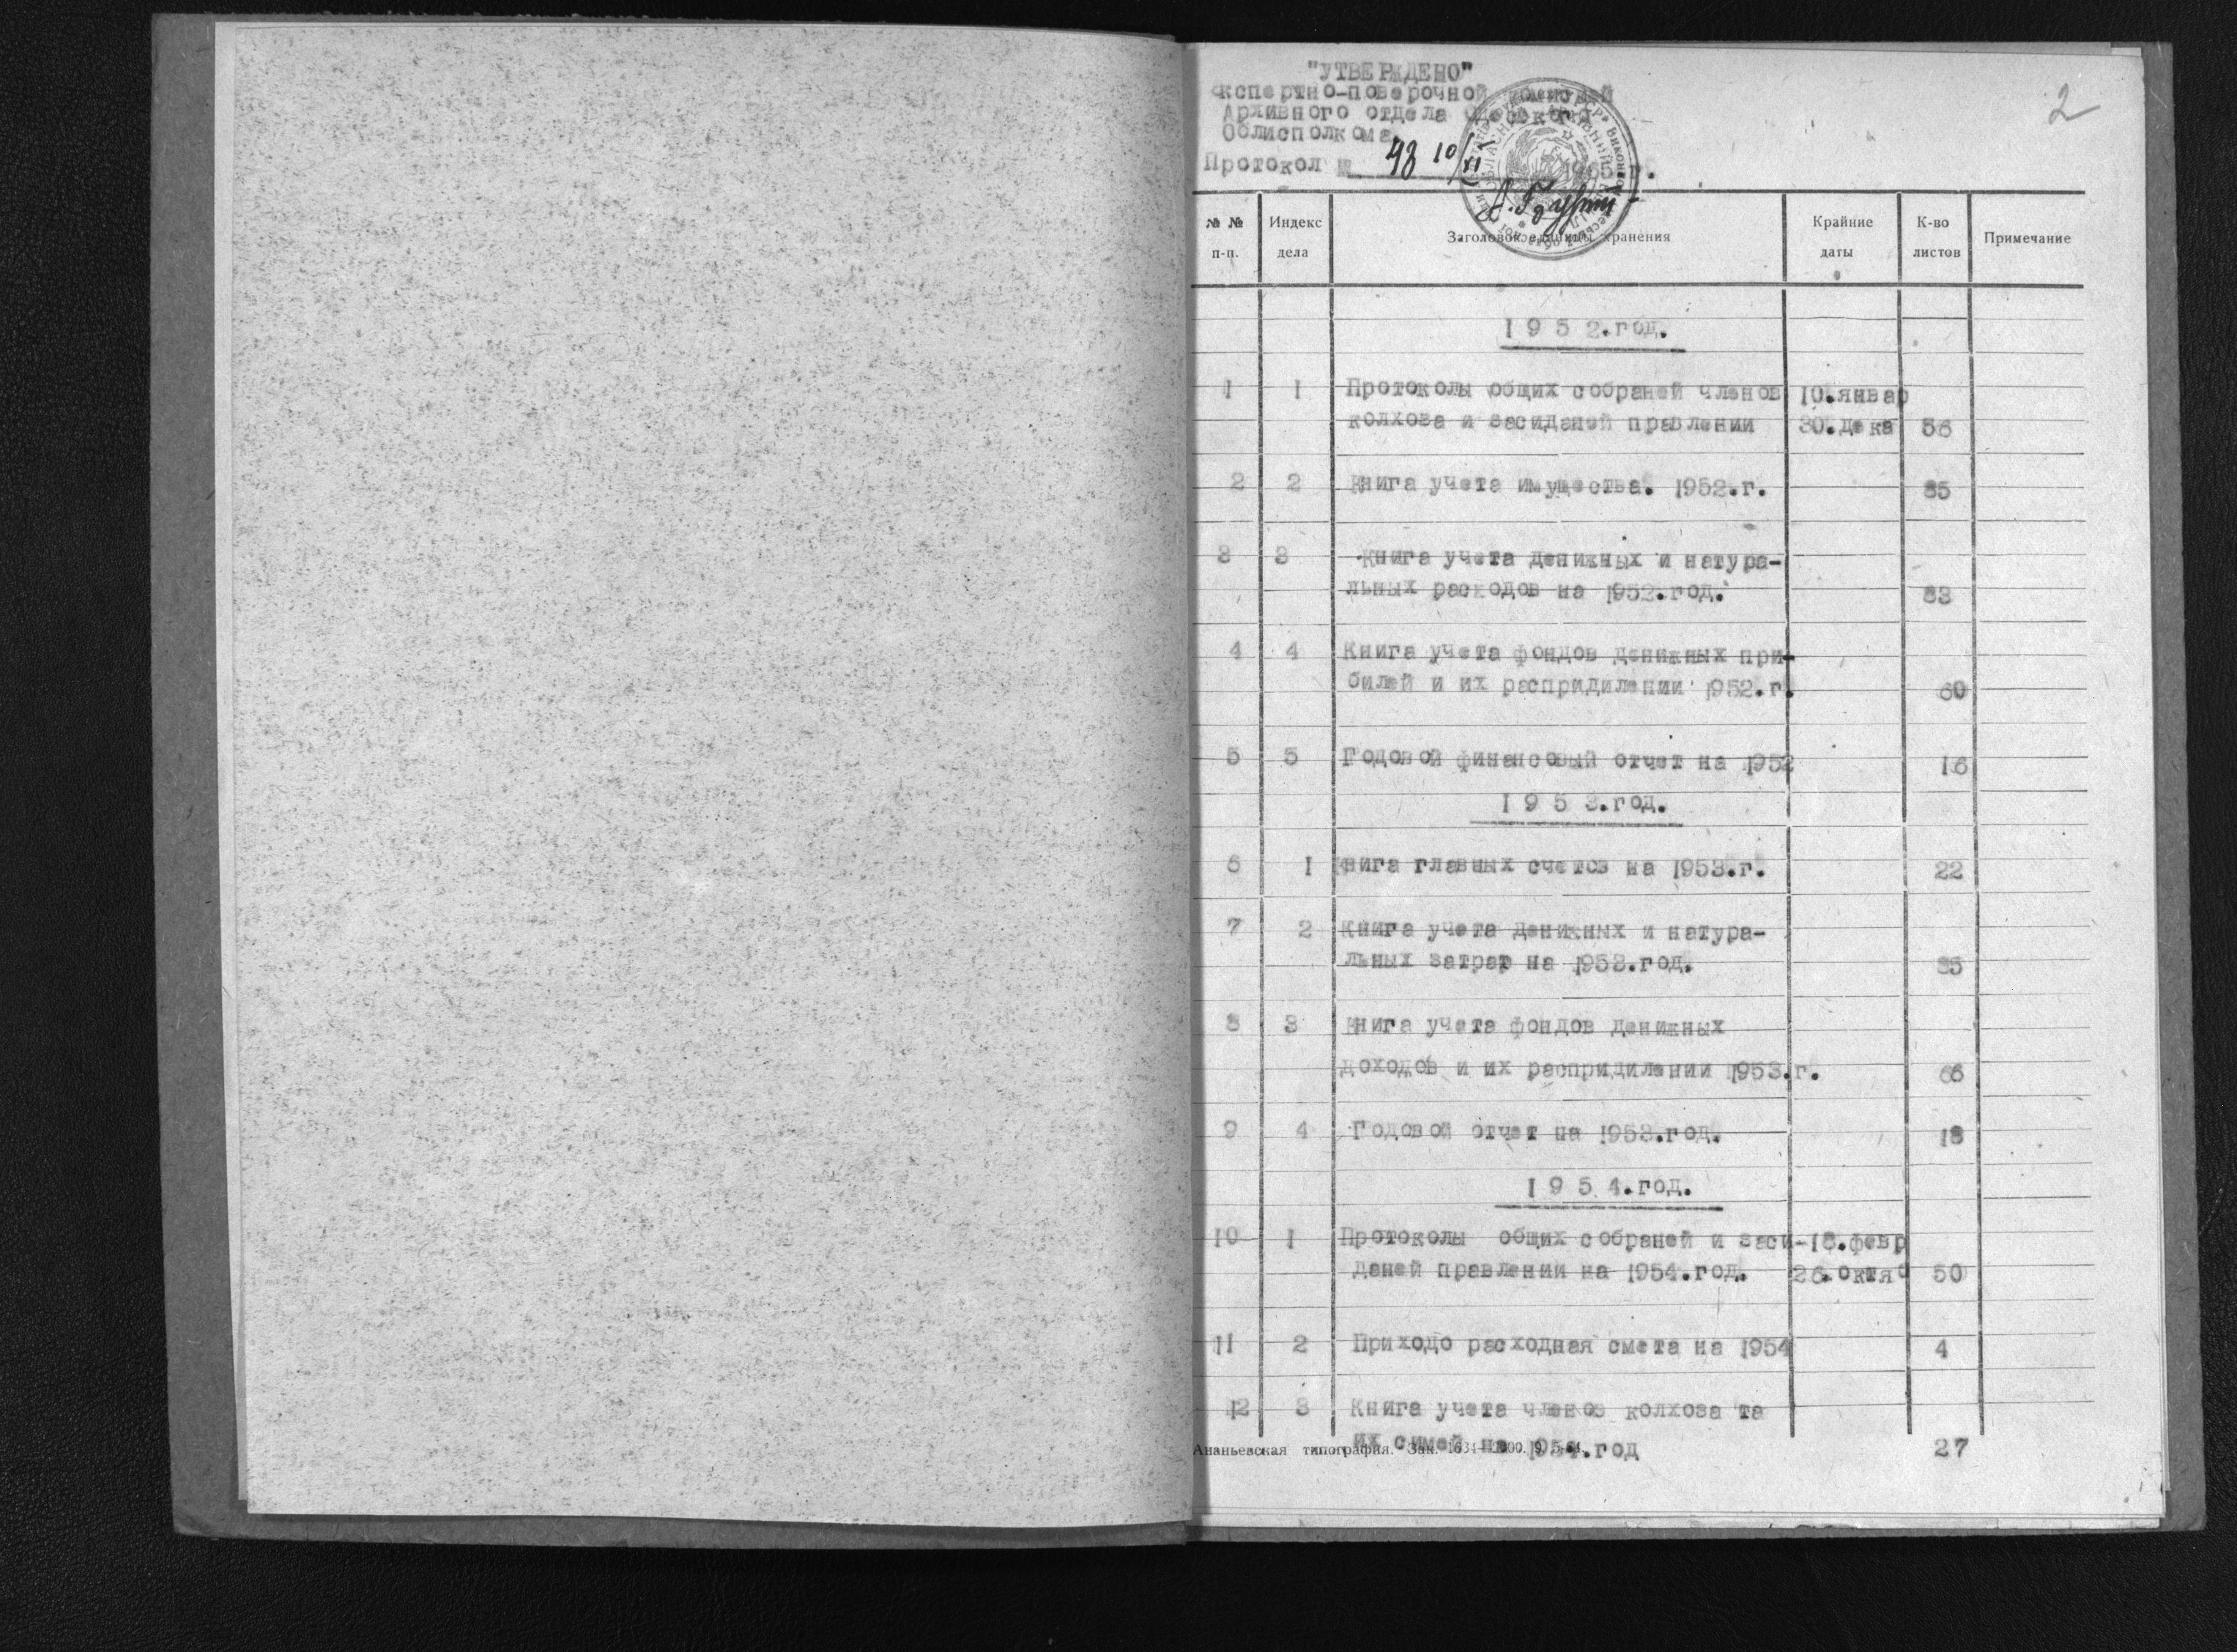 "УТВЕРЖДЕНО"
кспертно-поверочной комисией
Архивного отдела Одесского
Облисполкома
Протокол № 48 10/XI 1965.г.
2
№ № п-п.
Индекс дела
Заголовок единицы хранения
Крайние даты
К-во листов
Примечание
1 9 5 2.год.
1 1 Протоколы общих собраней членов 10.январ
колхоза и засиданей правлении 30.дека 56
2 2 Книга учета имущества. 1952.г. 35
3 3 Книга учета денижных и натура-
льных расходов на 1952.год. 33
4 4 Книга учета фондов денижных при-
билей и их распридилении 1952.г. 60
5 5 Годовой финансовый отчет на 1952 16
1 9 5 3.год.
6 1 Книга главных счетов на 1953.г. 22
7 2 Книга учета денижных и натура-
льных затрат на 1953.год. 35
8 3 Книга учета фондов денижных
доходов и их распридилении 1953.г. 66
9 4 Годовой отчет на 1953.год. 18
1 9 5 4.год.
10 1 Протоколы общих собраней и заси- 18.февр
даней правлении на 1954.год. 26.октя 50
11 2 Приходо расходная смета на 1954 4
12 3 Книга учета членов колхоза та
их симей на 1954.год 27
Ананьевская типография. Зак.